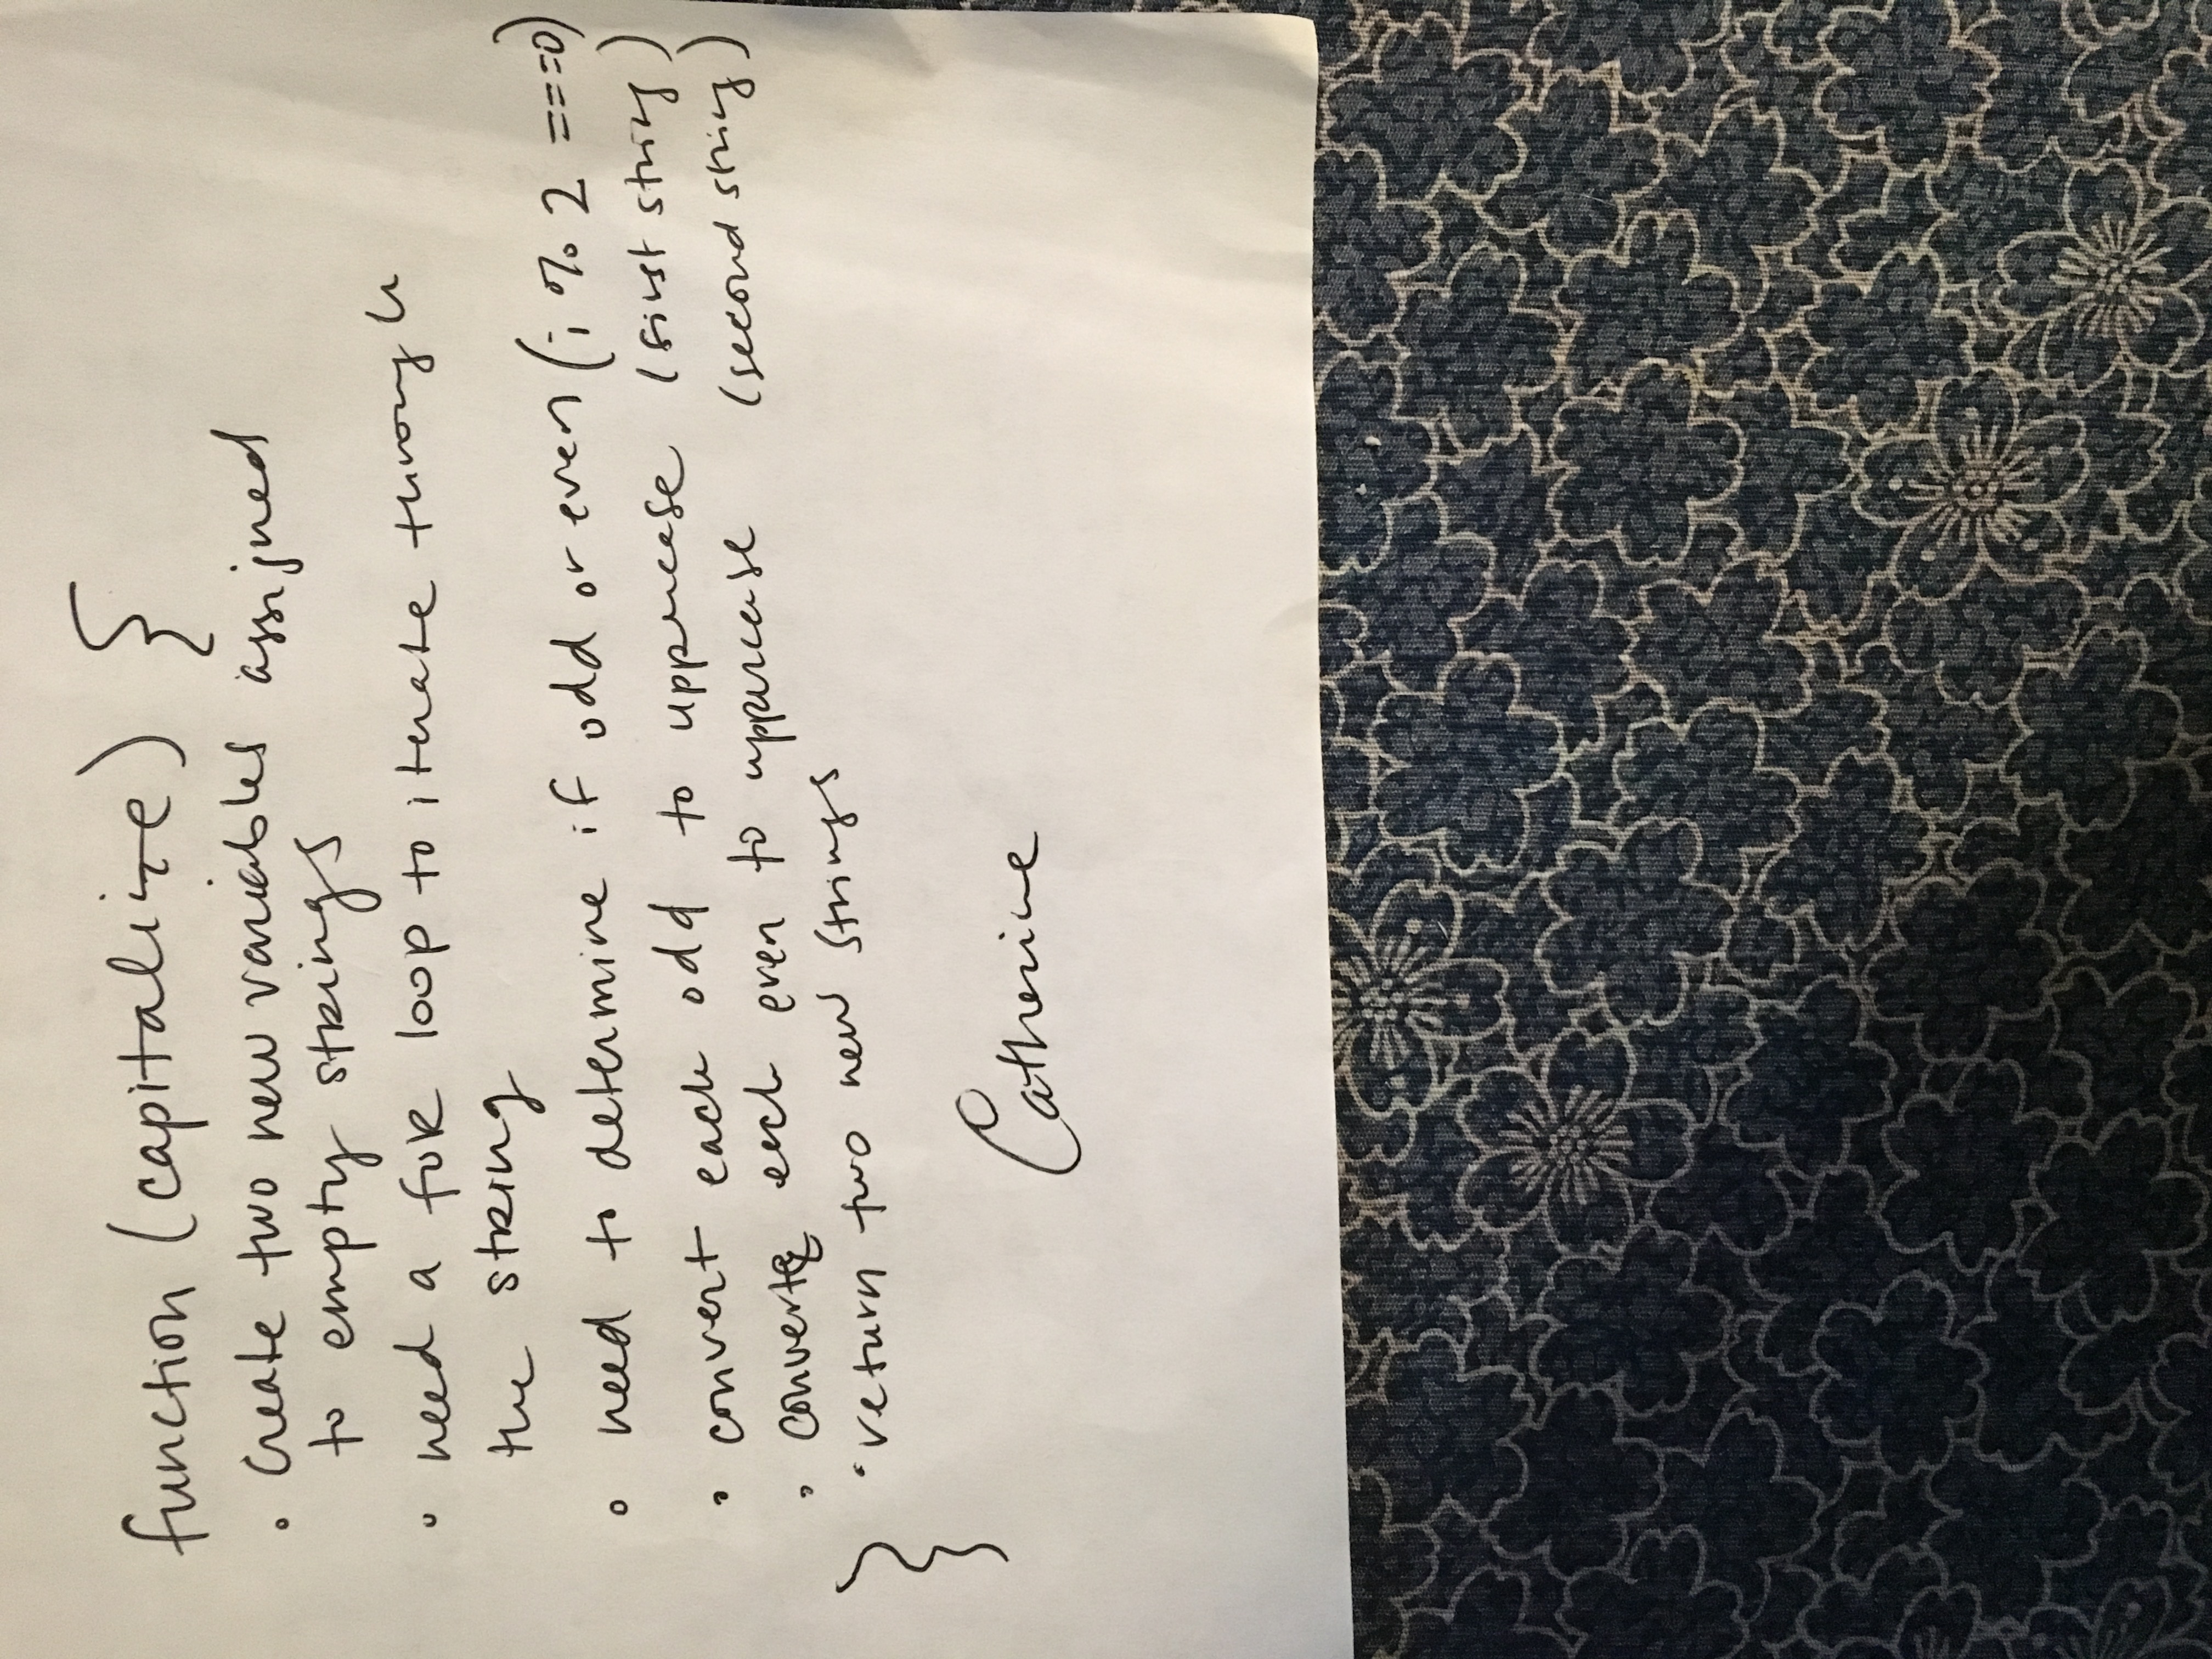 function (capitalize) {
• Create two new variables assigned
to empty strings
• need a for loop to iterate through
the string
• need to determine if odd or even (i % 2 === 0)
• convert each odd to uppercase (first string)
• convert each even to uppercase (second string)
• return two new strings
}
Catherine